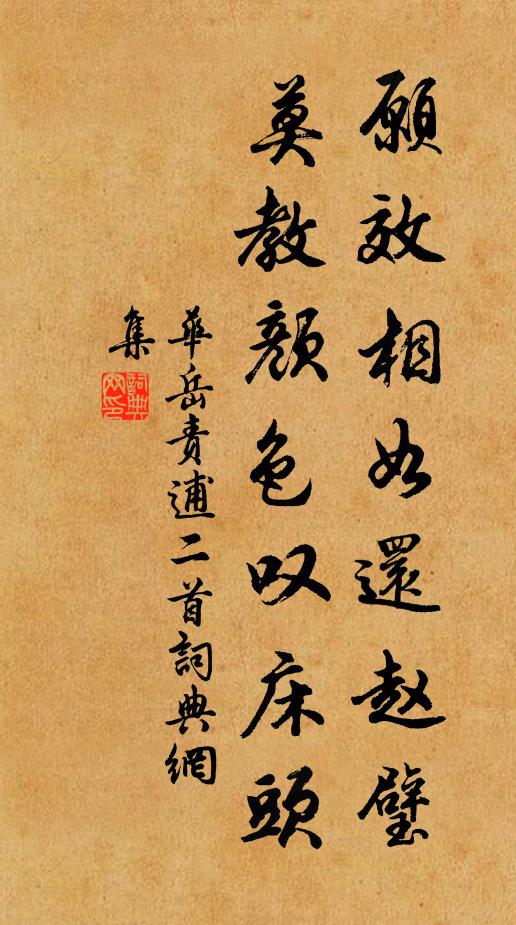 願效相如還赵璧
莫教顏色叹床頭
華岳責逋二首詞典網
集
詞典网印